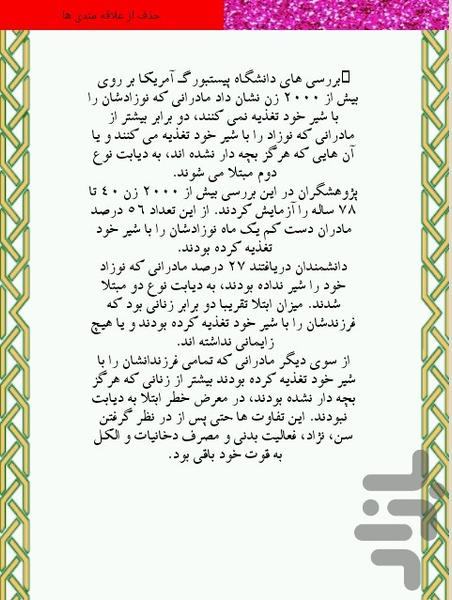 حذف از علاقه مندی ها
بررسی های دانشگاه پیستبورگ آمریکا بر روی
بیش از ۲۰۰۰ زن نشان داد مادرانی که نوزادشان را
با شیر خود تغذیه نمی کنند، دو برابر بیشتر از
مادرانی که نوزاد را با شیر خود تغذیه می کنند و یا
آن هایی که هرگز بچه دار نشده اند، به دیابت نوع
دوم مبتلا می شوند.
پژوهشگران در این بررسی بیش از ۲۰۰۰ زن ۴۰ تا
۷۸ ساله را آزمایش کردند. از این تعداد ۵۶ درصد
مادران دست کم یک ماه نوزادشان را با شیر خود
تغذیه کرده بودند.
دانشمندان دریافتند ۲۷ درصد مادرانی که نوزاد
خود را شیر نداده بودند، به دیابت نوع دو مبتلا
شدند. میزان ابتلا تقریبا دو برابر زنانی بود که
فرزندشان را با شیر خود تغذیه کرده بودند و یا هیچ
زایمانی نداشته اند.
از سوی دیگر مادرانی که تمامی فرزندانشان را با
شیر خود تغذیه کرده بودند بیشتر از زنانی که هرگز
بچه دار نشده بودند، در معرض خطر ابتلا به دیابت
نبودند. این تفاوت ها حتی پس از در نظر گرفتن
سن، نژاد، فعالیت بدنی و مصرف دخانیات و الکل
به قوت خود باقی بود.
بازار